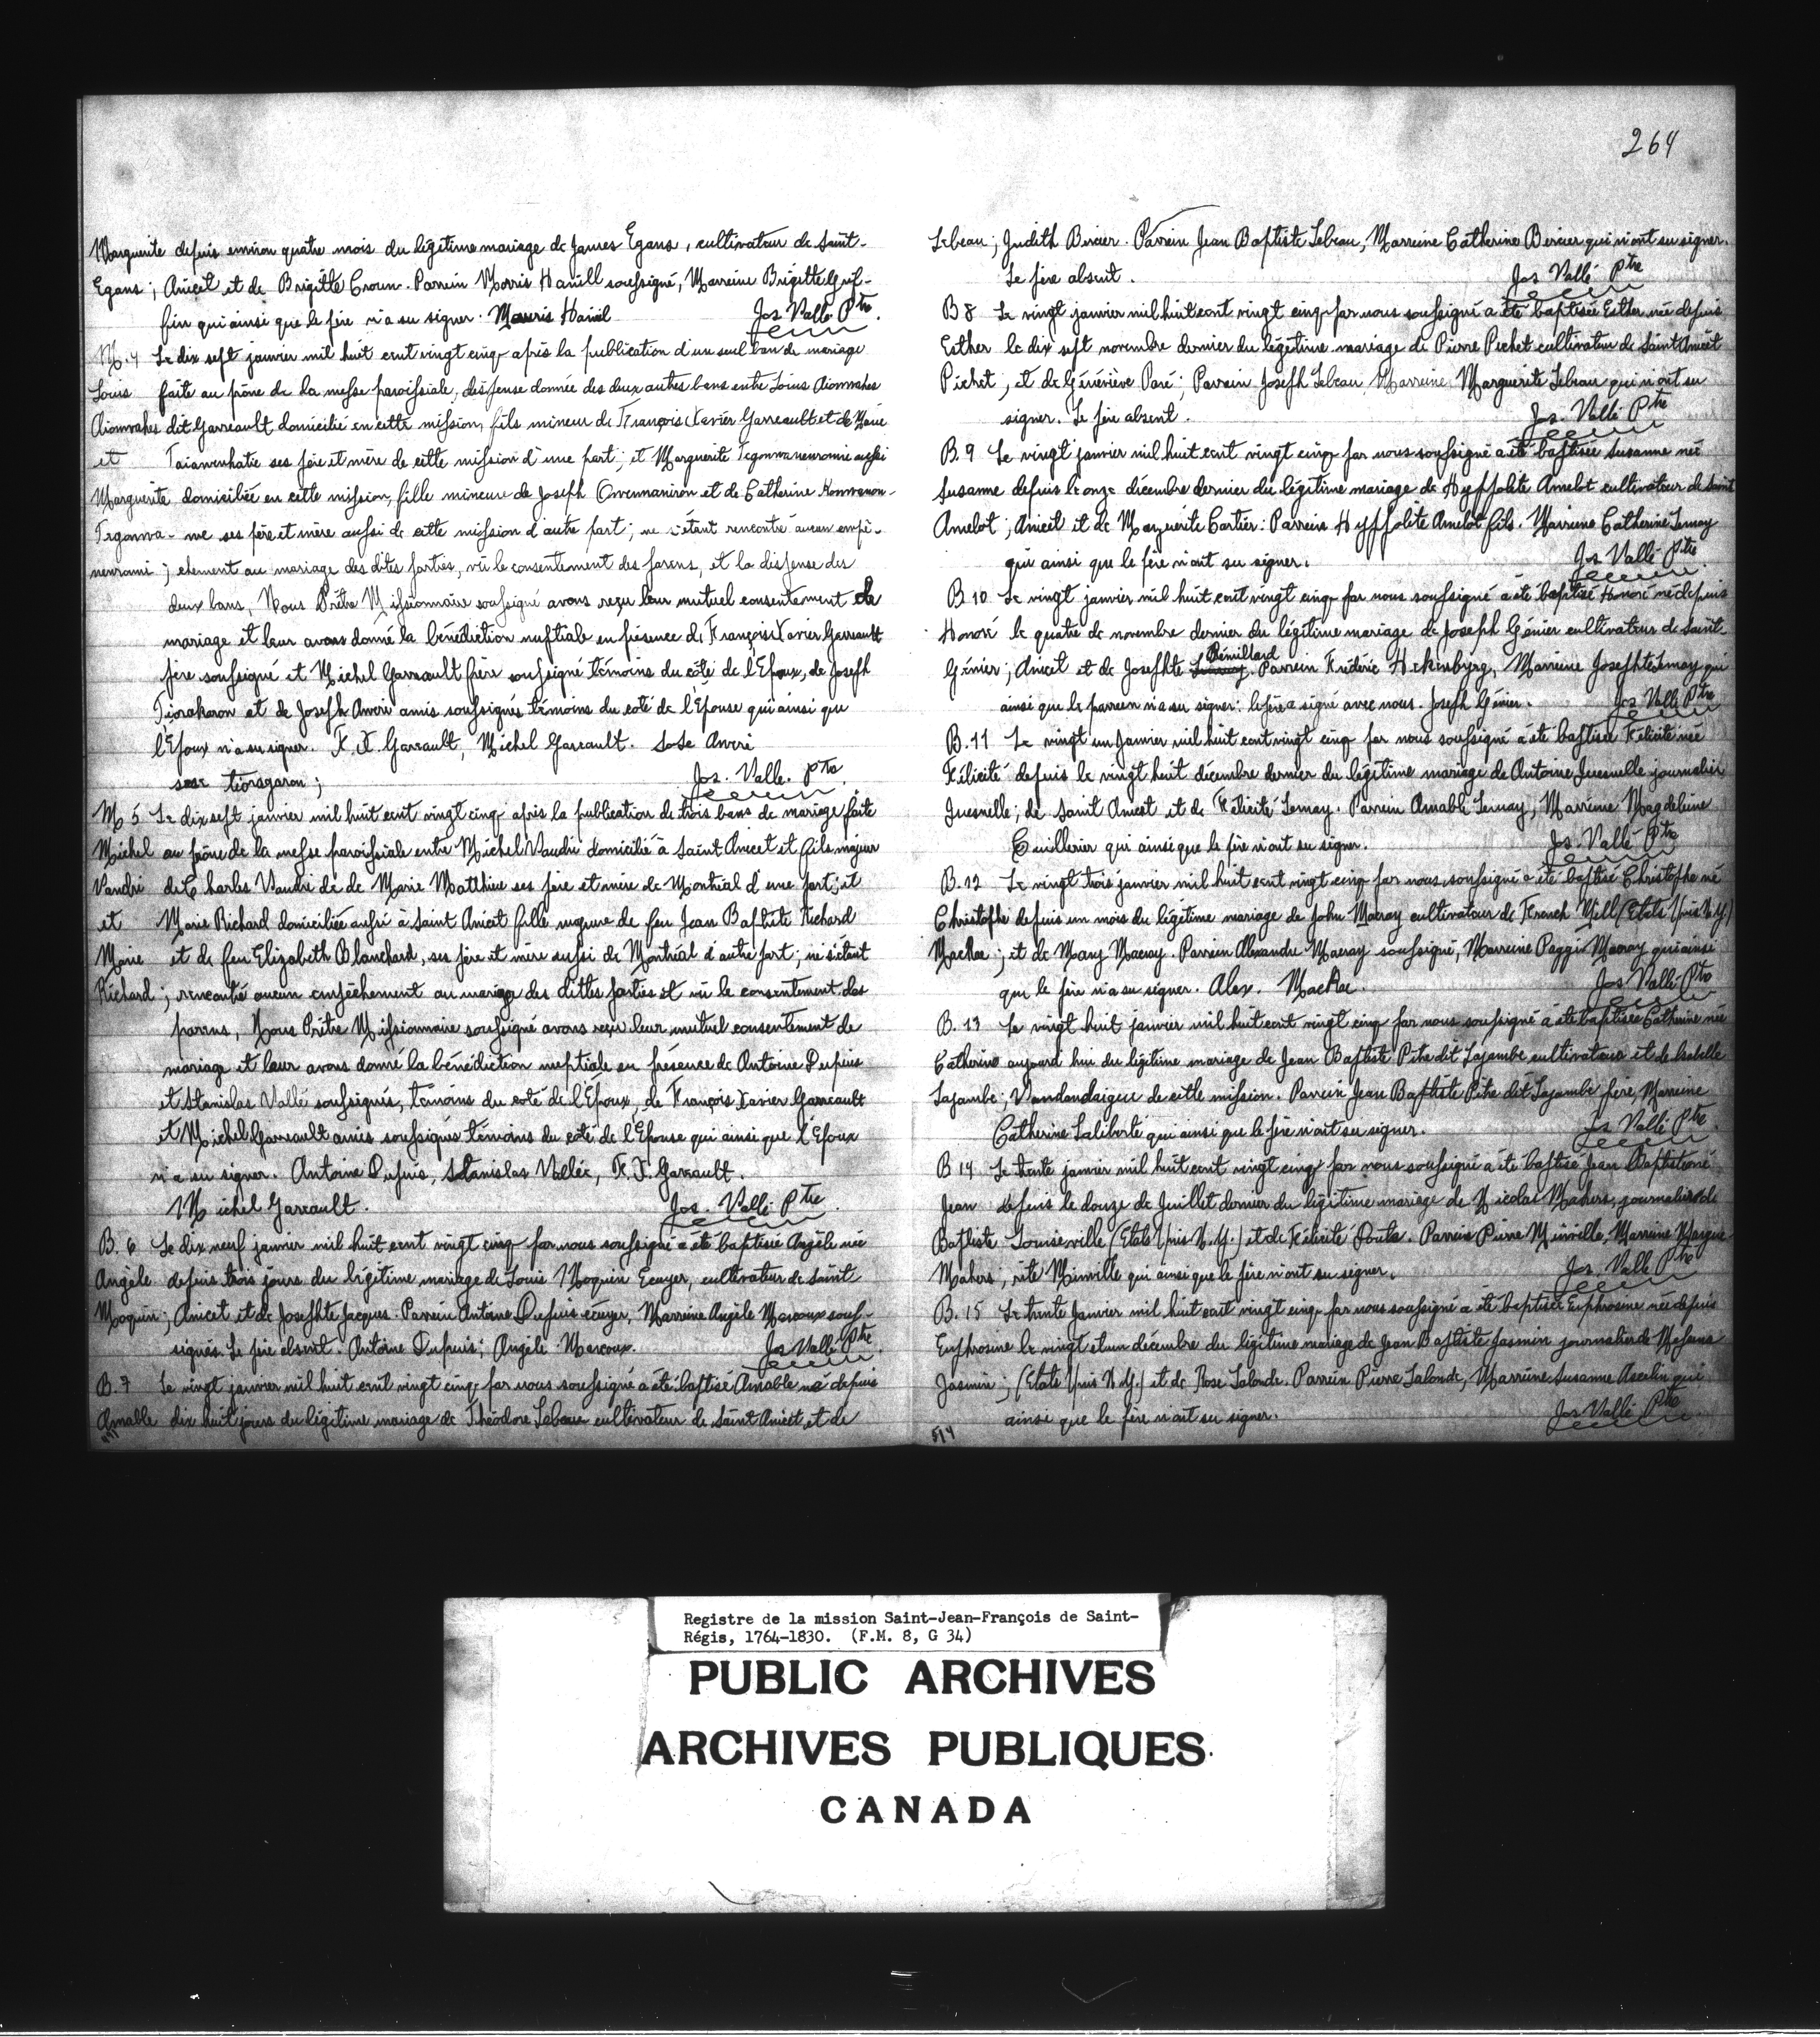 Marguerite depuis environ quatre mois du légitime mariage de James Egans, cultivateur de Saint-
Egans; Anicet et de Brigitte Croun. Parrein Morris Hanill soussigné, Marreine Brigitte Grif-
fin qui ainsi que le père n'a su signer. Mauris Haniel Jos Vallé Ptre.
M. 4 Le dix sept janvier mil huit cent vingt cinq après la publication d'un seul ban de mariage
Louis faite au prône de la messe paroissiale, dispense donnée des deux autres bans entre Louis Aionwahes
Aionwahes dit Garreault domicilié en cette mission, fils mineur de François Xavier Garreault et de Marie
et Taiawenhatie ses père et mère de cette mission d'une part; et Marguerite Tegonwanewromi aussi
Marguerite domiciliée en cette mission, fille mineure de Joseph Orwennaniron et de Catherine Konwanon-
Tegonwa- we ses père et mère aussi de cette mission d'autre part; ne s'étant rencontré aucun empê-
newromi; chement au mariage des dites parties, vû le consentement des parens, et la dispense des
deux bans, Nous Prêtre Missionnaire soussigné avons reçu leur mutuel consentement de
mariage et leur avons donné la bénédiction nuptiale en présence de François Xavier Garreault
père soussigné et Michel Garreault frère soussigné témoins du côté de l'Epoux, de Joseph
Tiorakaron et de Joseph Anvri amis soussignés témoins du coté de l'Epouse qui ainsi que
l'Epoux n'a su signer. F. X. Garreault, Michel Garreault. Sose Anvri
sose tioragaron; Jos. Valle. Ptre.
M 5 Le dix sept janvier mil huit cent vingt cinq après la publication de trois bans de mariage faite
Michel au prône de la messe paroissiale entre Michel Vaudri domicilié à Saint Anicet et fils majeur
Vaudri de Charles Vaudri de de Marie Matthieu ses père et mère de Montréal d'une part; et
et Marie Richard domiciliée aussi à Saint Anicet fille majeure de feu Jean Baptiste Richard
Marie et de feu Elizabeth Blanchard, ses père et mère aussi de Montréal d'autre part; ne s'étant
Richard; rencontré aucun empêchement au mariage des dittes parties et vû le consentement des
parens, Nous Prêtre Missionnaire soussigné avons reçu leur mutuel consentement de
mariage et leur avons donné la bénédiction nuptiale en présence de Antoine Dupuis
et Stanislas Vallé soussignés, témoins du coté de l'Epoux, de François Xavier Garreault
et Michel Garreault amis soussignés témoins du coté de l'Epouse qui ainsi que l'Epoux
n'a su signer. Antoine Dupuis, Stanislas Vallée, F. X. Garrault.
Michel Garreault. Jos. Vallé Ptre.
B. 6 Le dix neuf janvier mil huit cent vingt cinq par nous soussigné a été baptisée Angèle née
Angèle depuis trois jours du légitime mariage de Louis Moquin Ecuyer, cultivateur de Saint
Moquin; Anicet et de Josephte Jacques. Parrein Antoine Dupuis écuyer, Marreine Angèle Marcoux sous-
signés. Le père absent. Antoine Dupuis; Angèle Marcoux. Jos Vallé Ptre.
B. 7 Le vingt janvier mil huit cent vingt cinq par nous soussigné a été baptisé Amable né depuis
Amable dix huit jours du légitime mariage de Théodore Lebeau cultivateur de Saint Anicet et de
264
Lebeau; Judith Bercier. Parrein Jean Baptiste Lebeau, Marreine Catherine Bercier qui n'ont su signer.
Le père absent. Jos Vallé Ptre
B 8 Le vingt janvier mil huit cent vingt cinq par nous soussigné a été baptisée Esther née depuis
Esther le dix sept novembre dernier du légitime mariage de Pierre Pichet cultivateur de Saint Anicet
Pichet; et de Géneviève Paré; Parrein Joseph Lebeau Marreine Marguerite Lebeau qui n'ont su
signer. Le père absent. Jos. Vallé Ptre
B. 9 Le vingt janvier mil huit cent vingt cinq par nous soussigné a été baptisée Susanne née
Susanne depuis le onze décembre dernier du légitime mariage de Hyppolite Amelot cultivateur de Saint
Amelot; Anicet et de Marguerite Cartier: Parrein Hyppolite Amelot fils. Marreine Catherine Lemay
qui ainsi que le père n'ont su signer. Jos Vallé Ptre
B 10 Le vingt janvier mil huit cent vingt cinq par nous soussigné a été baptisé Honoré né depuis
Honoré le quatre de novembre dernier du légitime mariage de Joseph Génier cultivateur de Saint-
Rémillard
Génier; Anicet et de Josephte Lemay. Parrein Frédéric Hekenbyrg, Marreine Josephte Lemay qui
ainsi que le parrein n'a su signer: le père a signé avec nous. Joseph Génier. Jos Vallé Ptre
B. 11 Le vingt un Janvier mil huit cent vingt cinq par nous soussigné a été baptisée Félicité née
Félicité depuis le vingt huit décembre dernier du légitime mariage de Antoine Juesnelle journalier
Juesnelle; de Saint Anicet et de Félicité Lemay. Parrein Amable Lemay, Marreine Magdeleine
Cuillerier qui ainsi que le père n'ont su signer. Jos. Vallé Ptre
B. 12 Le vingt trois janvier mil huit cent vingt cinq par nous soussigné a été baptisé Christophe né
Christophe depuis un mois du légitime mariage de John Macray cultivateur de French Mill (Etats Unis N. Y.)
MacRae; et de Mary Macray. Parrein Alexandre Macray soussigné, Marreine Paggii Macray qui ainsi
que le père n'a su signer. Alex. MacRae. Jos Vallé Ptre
B. 13 Le vingt huit janvier mil huit cent vingt cinq par nous soussigné a été baptisée Catherine née
Catherine aujourd'hui du légitime mariage de Jean Baptiste Pitre dit Lajambe cultivateur et de Isabelle
Lajambe; Vandandaigue de cette mission. Parrein Jean Baptiste Pitre dit Lajambe père, Marreine
Catherine Laliberté qui ainsi que le père n'ont su signer. Jos Vallé Ptre.
B 14 Le trente janvier mil huit cent vingt cinq par nous soussigné a été baptisé Jean Baptiste né
Jean depuis le douze de Juillet dernier du légitime mariage de Nicolas Mahers, journalier de
Baptiste Louiseville (Etats Unis N. Y.) et de Félicité Poute. Parrein Pierre Minville, Marreine Margue-
Mahers; rite Minville qui ainsi que le père n'ont su signer. Jos. Vallé Ptre
B. 15 Le trente Janvier mil huit cent vingt cinq par nous soussigné a été baptisée Euphrosine née depuis
Euphrosine le vingt et un décembre du légitime mariage de Jean Baptiste Jasmin journalier de Massena
Jasmin; (Etats Unis N. Y.) et de Rose Lalonde. Parrein Pierre Lalonde, Marreine Susanne Ascelin qui
ainsi que le père n'ont su signer. Jos Vallé Ptre
514
Registre de la mission Saint-Jean-François de Saint-
Régis, 1764-1830. (F.M. 8, G 34)
PUBLIC ARCHIVES
ARCHIVES PUBLIQUES
CANADA